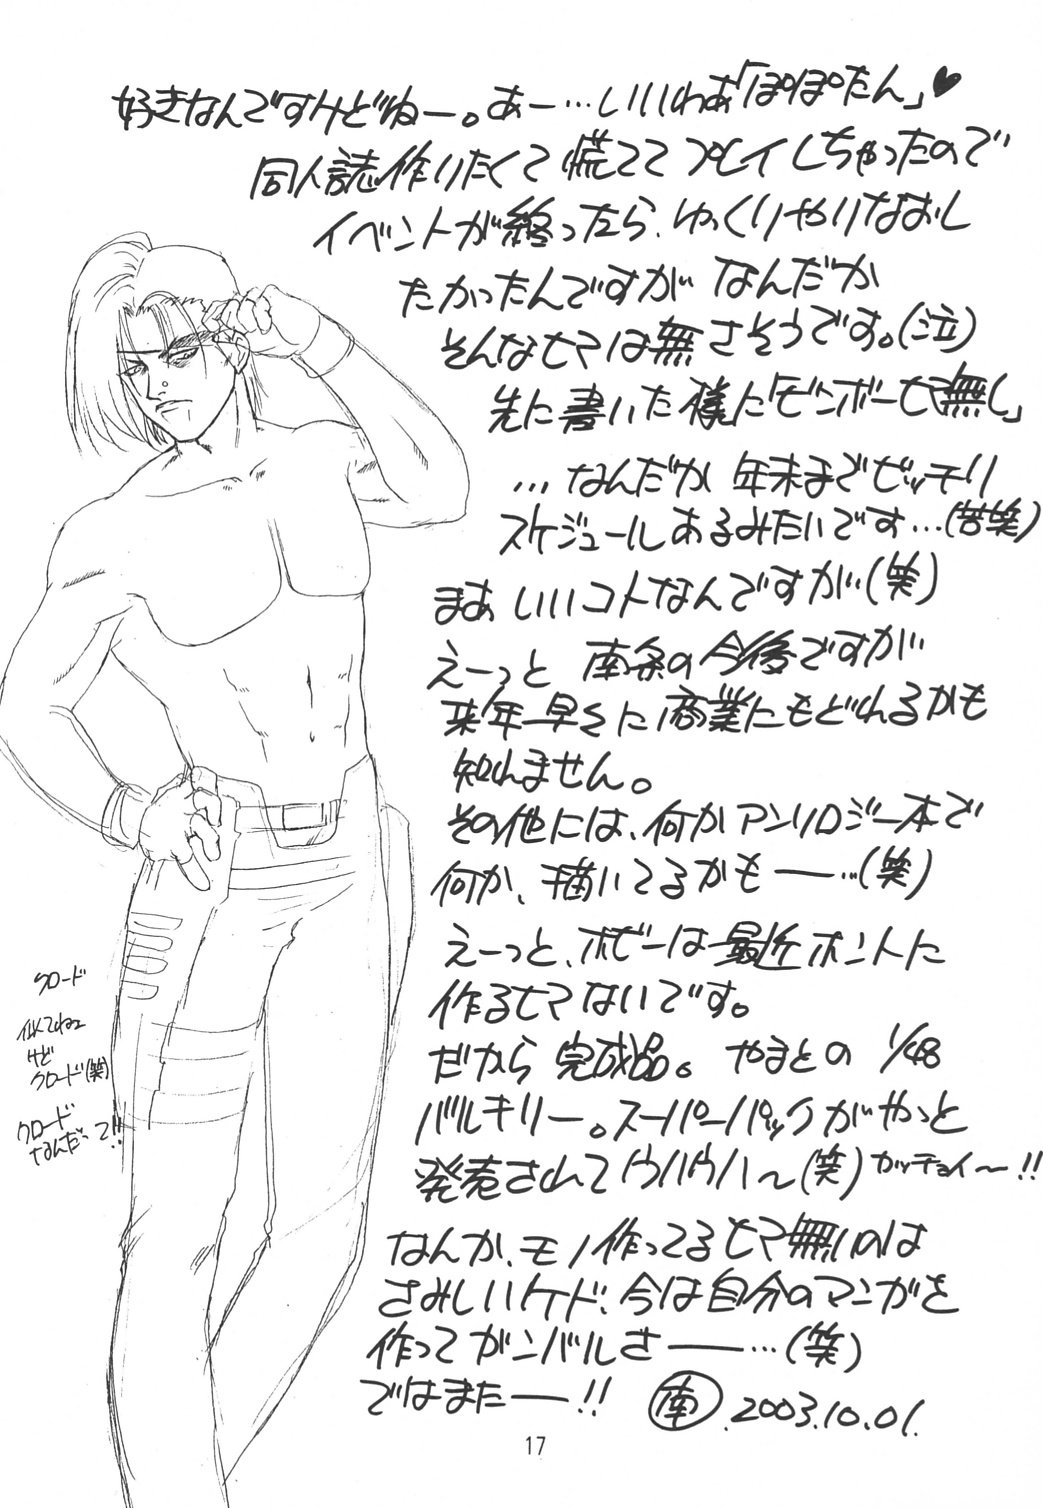 好きなんですけどねー。あー…いいわぁ「ぽぽたん」♥
同人誌作りたくて慌ててプレイしちゃったので
イベントが終ったら、ゆっくりやりなおし
たかったんですがなんだか
そんなヒマは無さそうです。(泣)
先に書いた様に「ビンボーヒマ無し」
…なんだか年末までビッチリ
スケジュールあるみたいです…(苦笑)
まぁいいコトなんですが…(笑)
えーっと南条の今後ですが
来年早々に商業にもどれるかも
知れません。
その他には、何かアンソロジー本で
何か、描いてるかも――…(笑)
えーっと、ホビーは最近ホントに
作るヒマないです。
だから完成品。やまとの1/48
バルキリー。スーパーパックがやっと
発売されてウハウハ〜(笑)カッチョイ〜!!
なんか、モノ作ってるヒマ無いのは
さみしいケド、今は自分のマンガを
作ってガンバルさ――…(笑)
ではまたー!! 南 .2003.10.01.
クロード
似てねェ
けど
クロード(笑)
クロード
なんだって!!
17